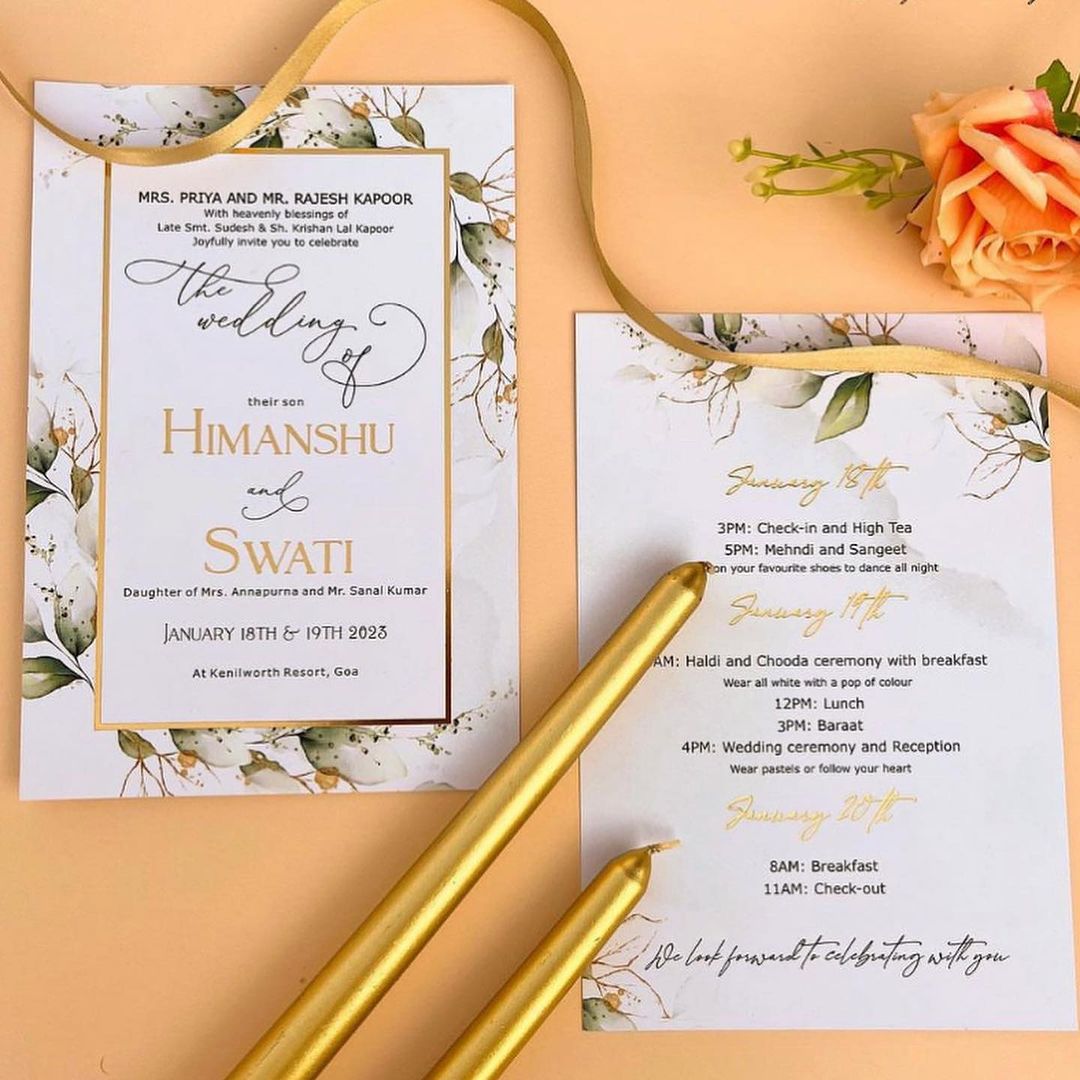 MRS. PRIYA AND MR. RAJESH KAPOOR
With heavenly blessings of
Late Smt. Sudesh & Sh. Krishan Lal Kapoor
Joyfully invite you to celebrate
the
wedding
of
their son
HIMANSHU
and
SWATI
Daughter of Mrs. Annapurna and Mr. Sanal Kumar
JANUARY 18TH & 19TH 2023
At Kenilworth Resort, Goa
January 18th
3PM: Check-in and High Tea
5PM: Mehndi and Sangeet
on your favourite shoes to dance all night
January 19th
AM: Haldi and Chooda ceremony with breakfast
Wear all white with a pop of colour
12PM: Lunch
3PM: Baraat
4PM: Wedding ceremony and Reception
Wear pastels or follow your heart
January 20th
8AM: Breakfast
11AM: Check-out
We look forward to celebrating with you